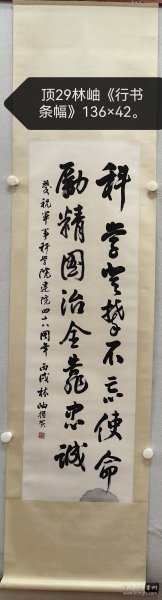 顶29林岫《行书
条幅》136×42。
科学登攀不忘使命
励精图治全靠忠诚
庆祝军事科学院建院四十八周年 丙戌 林岫